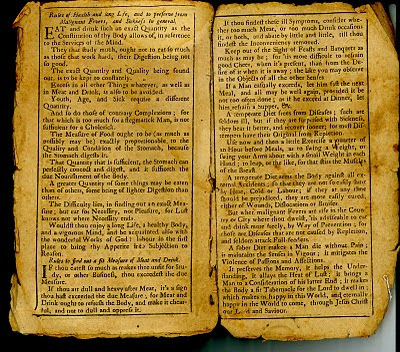 Rules of Health and long Life, and to preserve from
Malignant Fevers, and Sickness in general.
EAT and drink such an exact Quantity as the
Constitution of thy Body allows of, in reference
to the Services of the Mind.
They that study much, ought not to eat so much
as those that work hard, their Digestion being not
so good.
The exact Quantity and Quality being found
out, is to be kept to constantly.
Excess in all other Things whatever, as well as
in Meat and Drink, is also to be avoided.
Youth, Age, and Sick require a different
Quantity.
And so do those of contrary Complexions; for
that which is too much for a flegmatick Man, is not
sufficient for a Cholerick.
The Measure of Food ought to be (as much as
possibly may be) exactly proportionable to the
Quality and Condition of the Stomach, because
the Stomach digests it.
That Quantity that is sufficient, the Stomach can
perfectly concoct and digest, and it sufficeth the
due Nourishment of the Body.
A greater Quantity of some things may be eaten
than of others, some being of lighter Digestion than
others.
The Difficulty lies, in finding out an exact Mea-
sure; but eat for Necessity, not Pleasure, for Lust
knows not where Necessity ends.
Wouldst thou enjoy a long Life, a healthy Body,
and a vigorous Mind, and be acquainted also with
the wonderful Works of God? labour in the first
place to bring thy Appetite into Subjection to
Reason.
Rules to find out a fit Measure of Meat and Drink.
IF thou eatest so much as makes thee unfit for Stu-
dy, or other Business, thou exceedest the due
Measure.
If thou art dull and heavy after Meat, it's a sign
thou hast exceeded the due Measure; for Meat and
Drink ought to refresh the Body, and make it chear-
ful, and not to dull and oppress it.
If thou findest these ill Symptoms, consider whe-
ther too much Meat, or too much Drink occasions
it, or both, and abate by little and little, till thou
findest the Inconveniency removed.
Keep out of the Sight of Feasts and Banquets as
much as may be; for 'tis more difficult to refrain
good Cheer, when it's present, than from the De-
sire of it when it is away; the like you may observe
in the Objects of all the other Senses
If a Man casually exceeds, let him fast the next
Meal, and all may be well again, provided it be
not too often done; as if he exceed at Dinner, let
him refrain a Supper, &c.
A temperate Diet frees from Diseases; such are
seldom ill, but if they are surprised with Sickness,
they bear it better, and recover sooner; for most Dis-
tempers have their Original from Repletion.
Use now and then a little Exercise a quarter of
an Hour before Meals, as to swing a Weight, or
swing your Arms about with a small Weight in each
Hand; to leap, or the like, for that stirs the Muscles
of the Breast
A temperate Diet arms the Body against all ex-
ternal Accidents; so that they are not so easily hurt
by Heat, Cold or Labour; if they at any time
should be prejudiced, they are more easily cured,
either of Wounds, Dislocations or Bruises
But when malignant Fevers are rife in the Coun-
try or City where thou dwelst, 'tis adviseable to eat
and drink more freely, by Way of Prevention; for
those are Diseases that are not caused by Repletion,
and seldom attack Full-feeders.
A sober Diet makes a Man die without Pain;
it maintains the Senses in Vigour; it mitigates the
Violence of Passions and Affections.
It preserves the Memory, it helps the Under-
standing, it allays the Heat of Lust; it brings a
Man to a Consideration of his latter End; it makes
the Body a fit Tabernacle for the Lord to dwell in;
which makes us happy in this World, and eternally
happy in the World to come, through Jesus Christ
our Lord and Saviour.